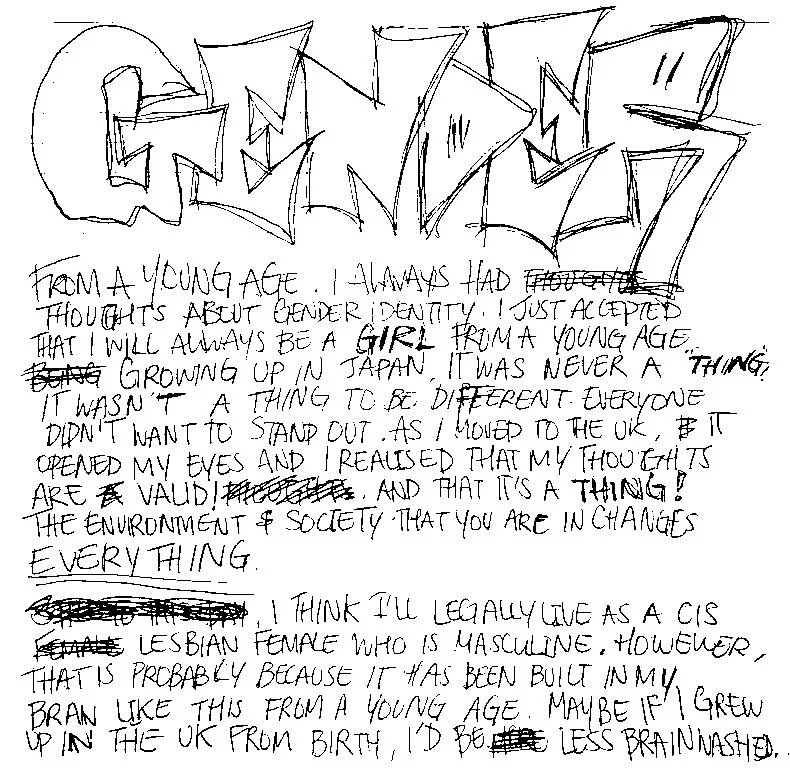 GENDER
FROM A YOUNG AGE. I ALWAYS HAD
THOUGHTS ABOUT GENDER IDENTITY. I JUST ACCEPTED
THAT I WILL ALWAYS BE A GIRL FROM A YOUNG AGE.
GROWING UP IN JAPAN, IT WAS NEVER A "THING,
IT WASN'T A THING TO BE DIFFERENT. EVERYONE
DIDN'T WANT TO STAND OUT. AS I MOVED TO THE UK, IT
OPENED MY EYES AND I REALISED THAT MY THOUGHTS
ARE VALID! AND THAT IT'S A THING!
THE ENVIRONMENT & SOCIETY THAT YOU ARE IN CHANGES
EVERYTHING.
I THINK I'LL LEGALLY LIVE AS A CIS
FEMALE LESBIAN FEMALE WHO IS MASCULINE. HOWEVER,
THAT IS PROBABLY BECAUSE IT HAS BEEN BUILT IN MY
BRAN LIKE THIS FROM A YOUNG AGE. MAYBE IF I GREW
UP IN THE UK FROM BIRTH, I'D BE LESS BRAINWASHED.